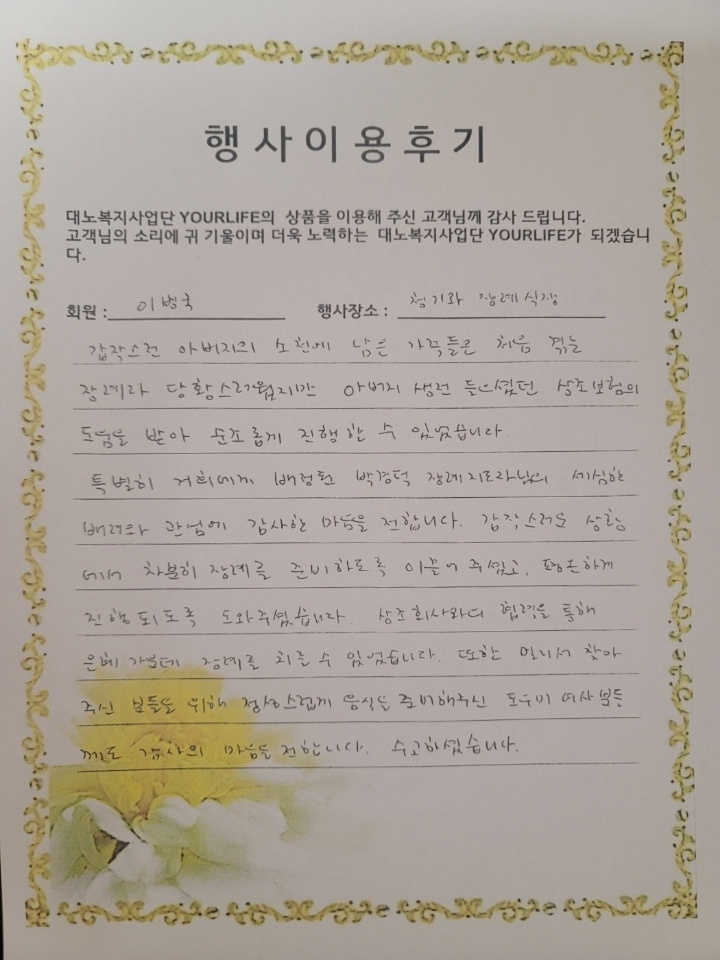 행사이용후기
대노복지사업단 YOURLIFE의 상품을 이용해 주신 고객님께 감사 드립니다.
고객님의 소리에 귀 기울이며 더욱 노력하는 대노복지사업단 YOURLIFE가 되겠습니
다.
회원 : 이병국 행사장소 : 청기와 장례식장
갑작스런 아버지의 소천에 남은 가족들은 처음 겪는
장례라 당황스러웠지만 아버지 생전 들으셨던 상조보험의
도움을 받아 순조롭게 진행할 수 있었습니다.
특별히 저희에게 배정된 박경덕 장례지도사님의 세심한
배려와 관심에 감사한 마음을 전합니다. 갑작스러운 상황
에서 차분히 장례를 준비하도록 이끌어 주셨고, 평온하게
진행되도록 도와주셨습니다. 상조회사와의 협력을 통해
은혜 가운데 장례를 치를 수 있었습니다. 또한 멀리서 찾아
주신 분들을 위해 정성스럽게 음식을 준비해주신 도우미 여사분들
께도 감사의 마음을 전합니다. 수고하셨습니다.